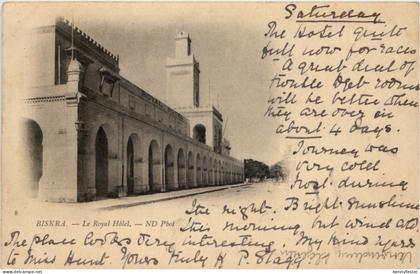 Saturday
The Hotel quite
full now for races
A great deal of
trouble rooms
will be better when
they are over in
about 4 days.
Journey was
very cold
during
the night. Bright Sunshine
this morning but wind cold
The place looks very interesting My kind regards
to Mrs Hunt Yours truly
BISKRA. — Le Royal Hôtel. — ND Phot